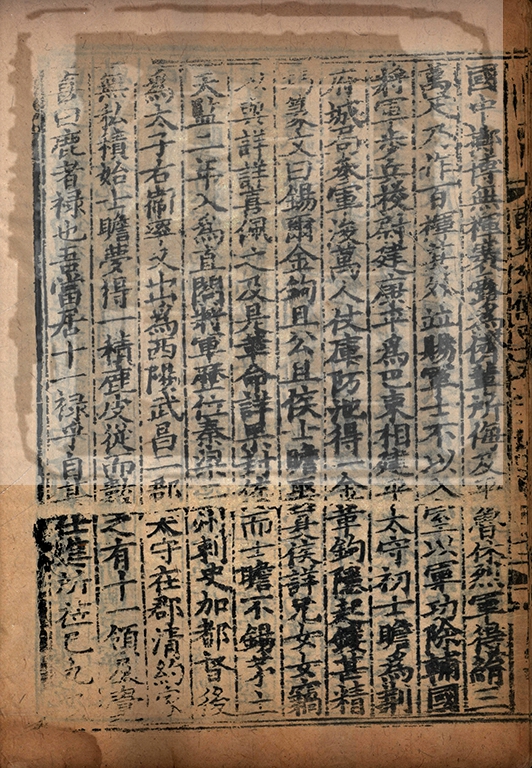 國中擲博無褌褻露為儕輩所侮及平魯休烈軍得絹三
萬疋乃作百褌其外並賜軍士不以入室以軍功除輔國
將軍步兵校尉建康平為巴東相建平太守初士瞻為荊
府城局參軍浚萬人仗庫防池得一金革鉤隱起鏤甚精
篆文曰錫爾金鉤且公且侯士瞻娶夏侯詳兄女女竊
以與詳詳喜佩之及是革命詳果封侯而士瞻不錫茅土
天監二年入為直閤將軍歷位秦梁二州刺史加都督後
為太子右衞率又出為西陽武昌二郡太守在郡清約家
無私積始士瞻夢得一積鹿皮從而數之有十一領及覺
喜曰鹿者祿也吾當居十一祿乎自其仕進所莅已九